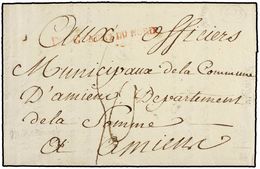 Aux officiers
Municipaux de la Commune
D'amiens Departement
de la Somme
a Amiens